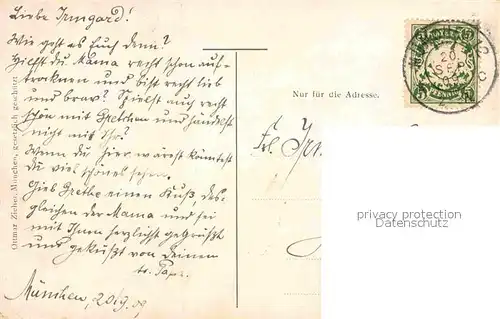 Liebe Irmgard!
Wie geht es Euch denn?
Hilfst du Mama recht schön auf-
trocknen und bist recht lieb
und brav? Spielst auch recht
schön mit Gretchen und händelst
nicht mit Ihr?
Wenn du hier wärest könntest
du viel schönes sehen.
Gieb Grethe einen Kuß, des-
gleichen der Mama und sei
mit Ihnen herzlichst gegrüßt
und geküßt von deinem
tr. Papa.
München, 20/9.09
Ottmar Zieher, München, gesetzlich geschützt
BAYERN
5 5
PFENNIG
20
SEP
Nur für die Adresse.
Frl. Ir
privacy protection
Datenschutz